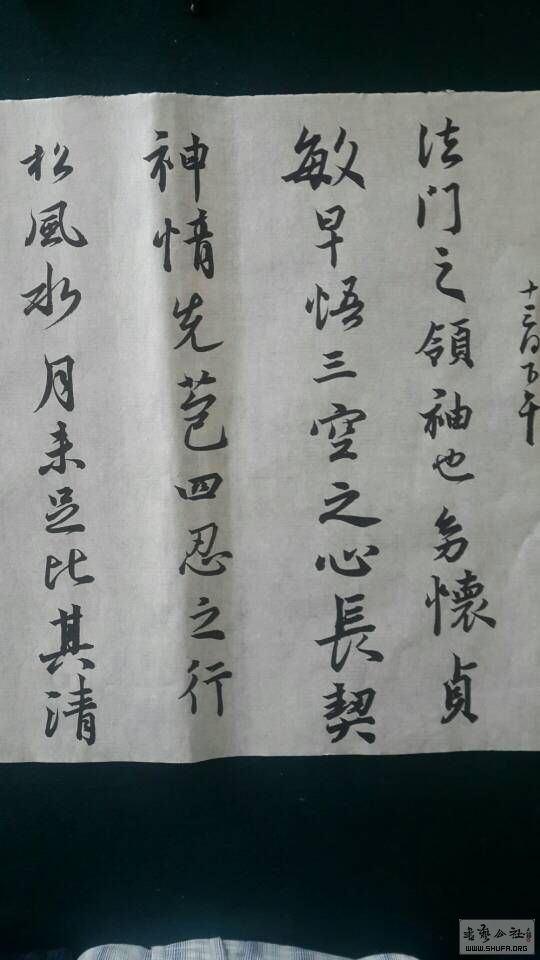 十三日下午
法门之領袖也㓜懷貞
敏早悟三空之心長契
神情先苞四忍之行
松風水月未足比其清
WWW.SHUFA.ORG